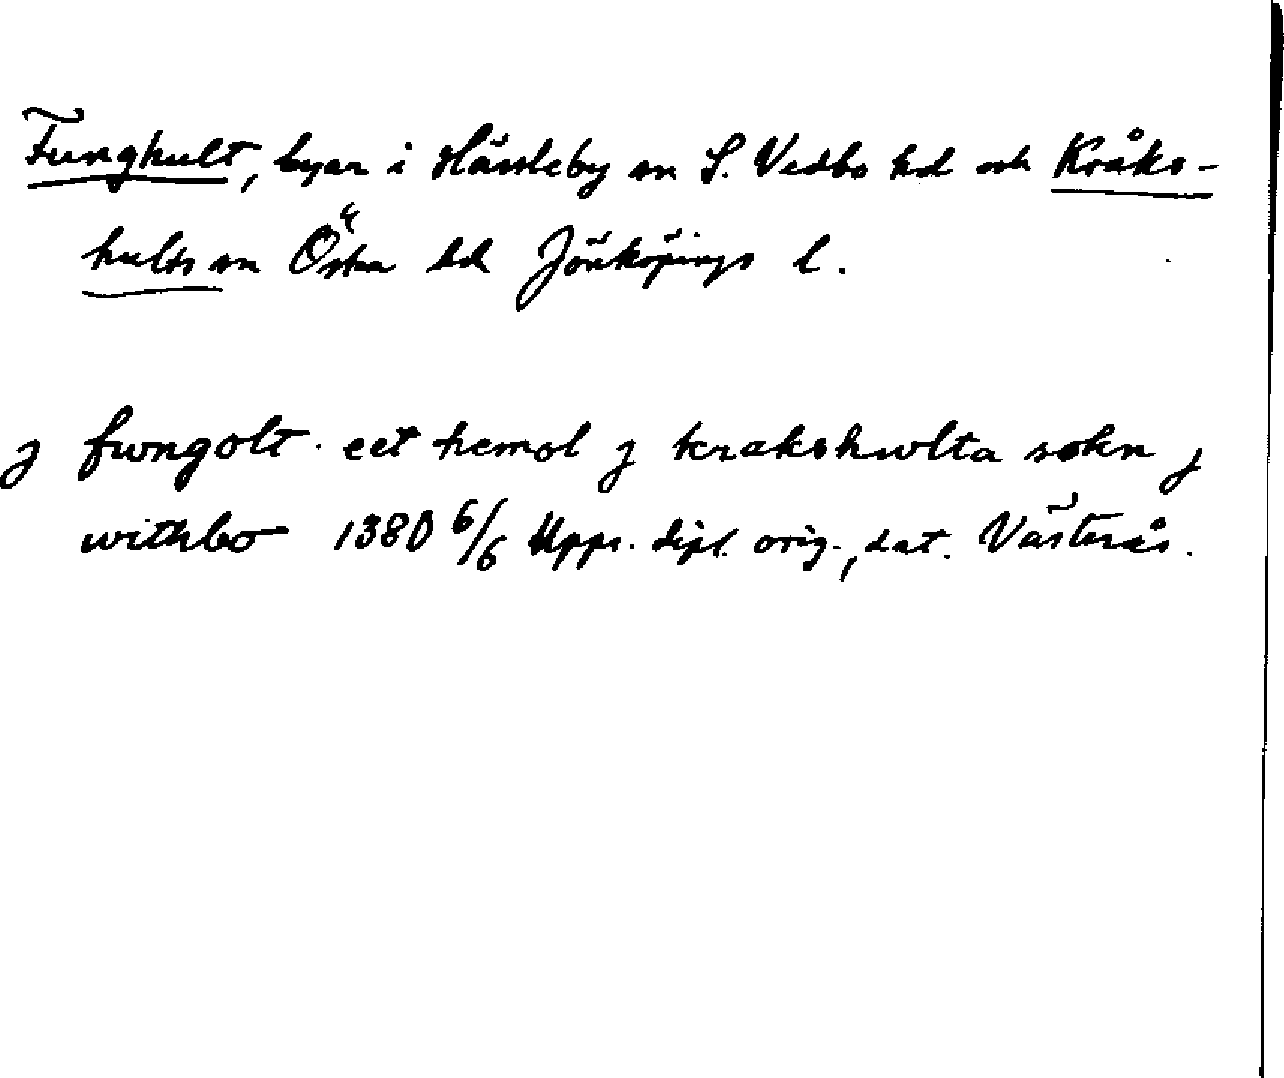 Funghult, byar i Hässleby sn S. Vedbo hd och Kråks-
hults sn Östra hd Jönköpings l.
j fwngolt. eet hemol j krakshwlta sokn j
withbo 1380 6/6 Upps. dipl. orig., dat. Västerås.